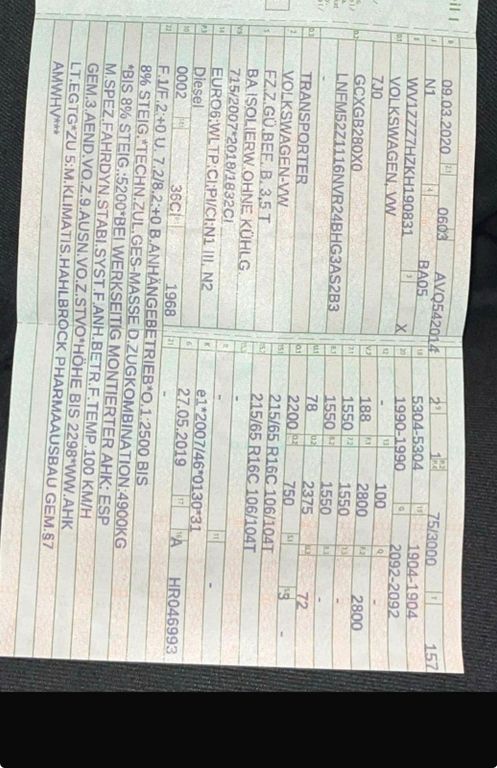 09.03.2020 0603 AVQ542014
N1 BA05
WV1ZZZ7HZKH190831 X
VOLKSWAGEN, VW
7J0
GCXGB280X0
LNFM52Z1116NVR24BHG3AS2B3
-
TRANSPORTER
VOLKSWAGEN-VW
FZ.Z.GÜ.BEF. B. 3,5 T
BA.ISOLIERW.OHNE KÜHLG
715/2007*2018/1832CI
EURO6;WLTP;CI;PI/CI;N1 III, N2
Diesel
0002 36CI 1968
2 1 75/3000 157
5304-5304 1904-1904
1990-1990 2092-2092
- 100 -
188 2800 2800
1550 1550 -
1550 1550 -
78 2375 72
2200 750 3 -
215/65 R16C 106/104T
215/65 R16C 106/104T
-
- -
e1*2007/46*0130*31
27.05.2019 A HR046993
-
F.1/F.2:+0 U. 7.2/8.2:+0 B.ANHÄNGEBETRIEB*O.1:2500 BIS
8% STEIG.*TECHN.ZUL.GES-MASSE D.ZUGKOMBINATION:4900KG
*BIS 8% STEIG.:5200*BEI WERKSEITIG MONTIERTER AHK: ESP
M.SPEZ.FAHRDYN.STABI.SYST.F.ANH.BETR.F.TEMP.100 KM/H
GEM.3.AEND.VO.Z.9.AUSN.VO.Z.STVO*HÖHE BIS 2298*WW.AHK
LT.EGTG*ZU 5:M.KLIMATIS.HAHLBROCK PHARMAAUSBAU GEM.§7
AMWHV***